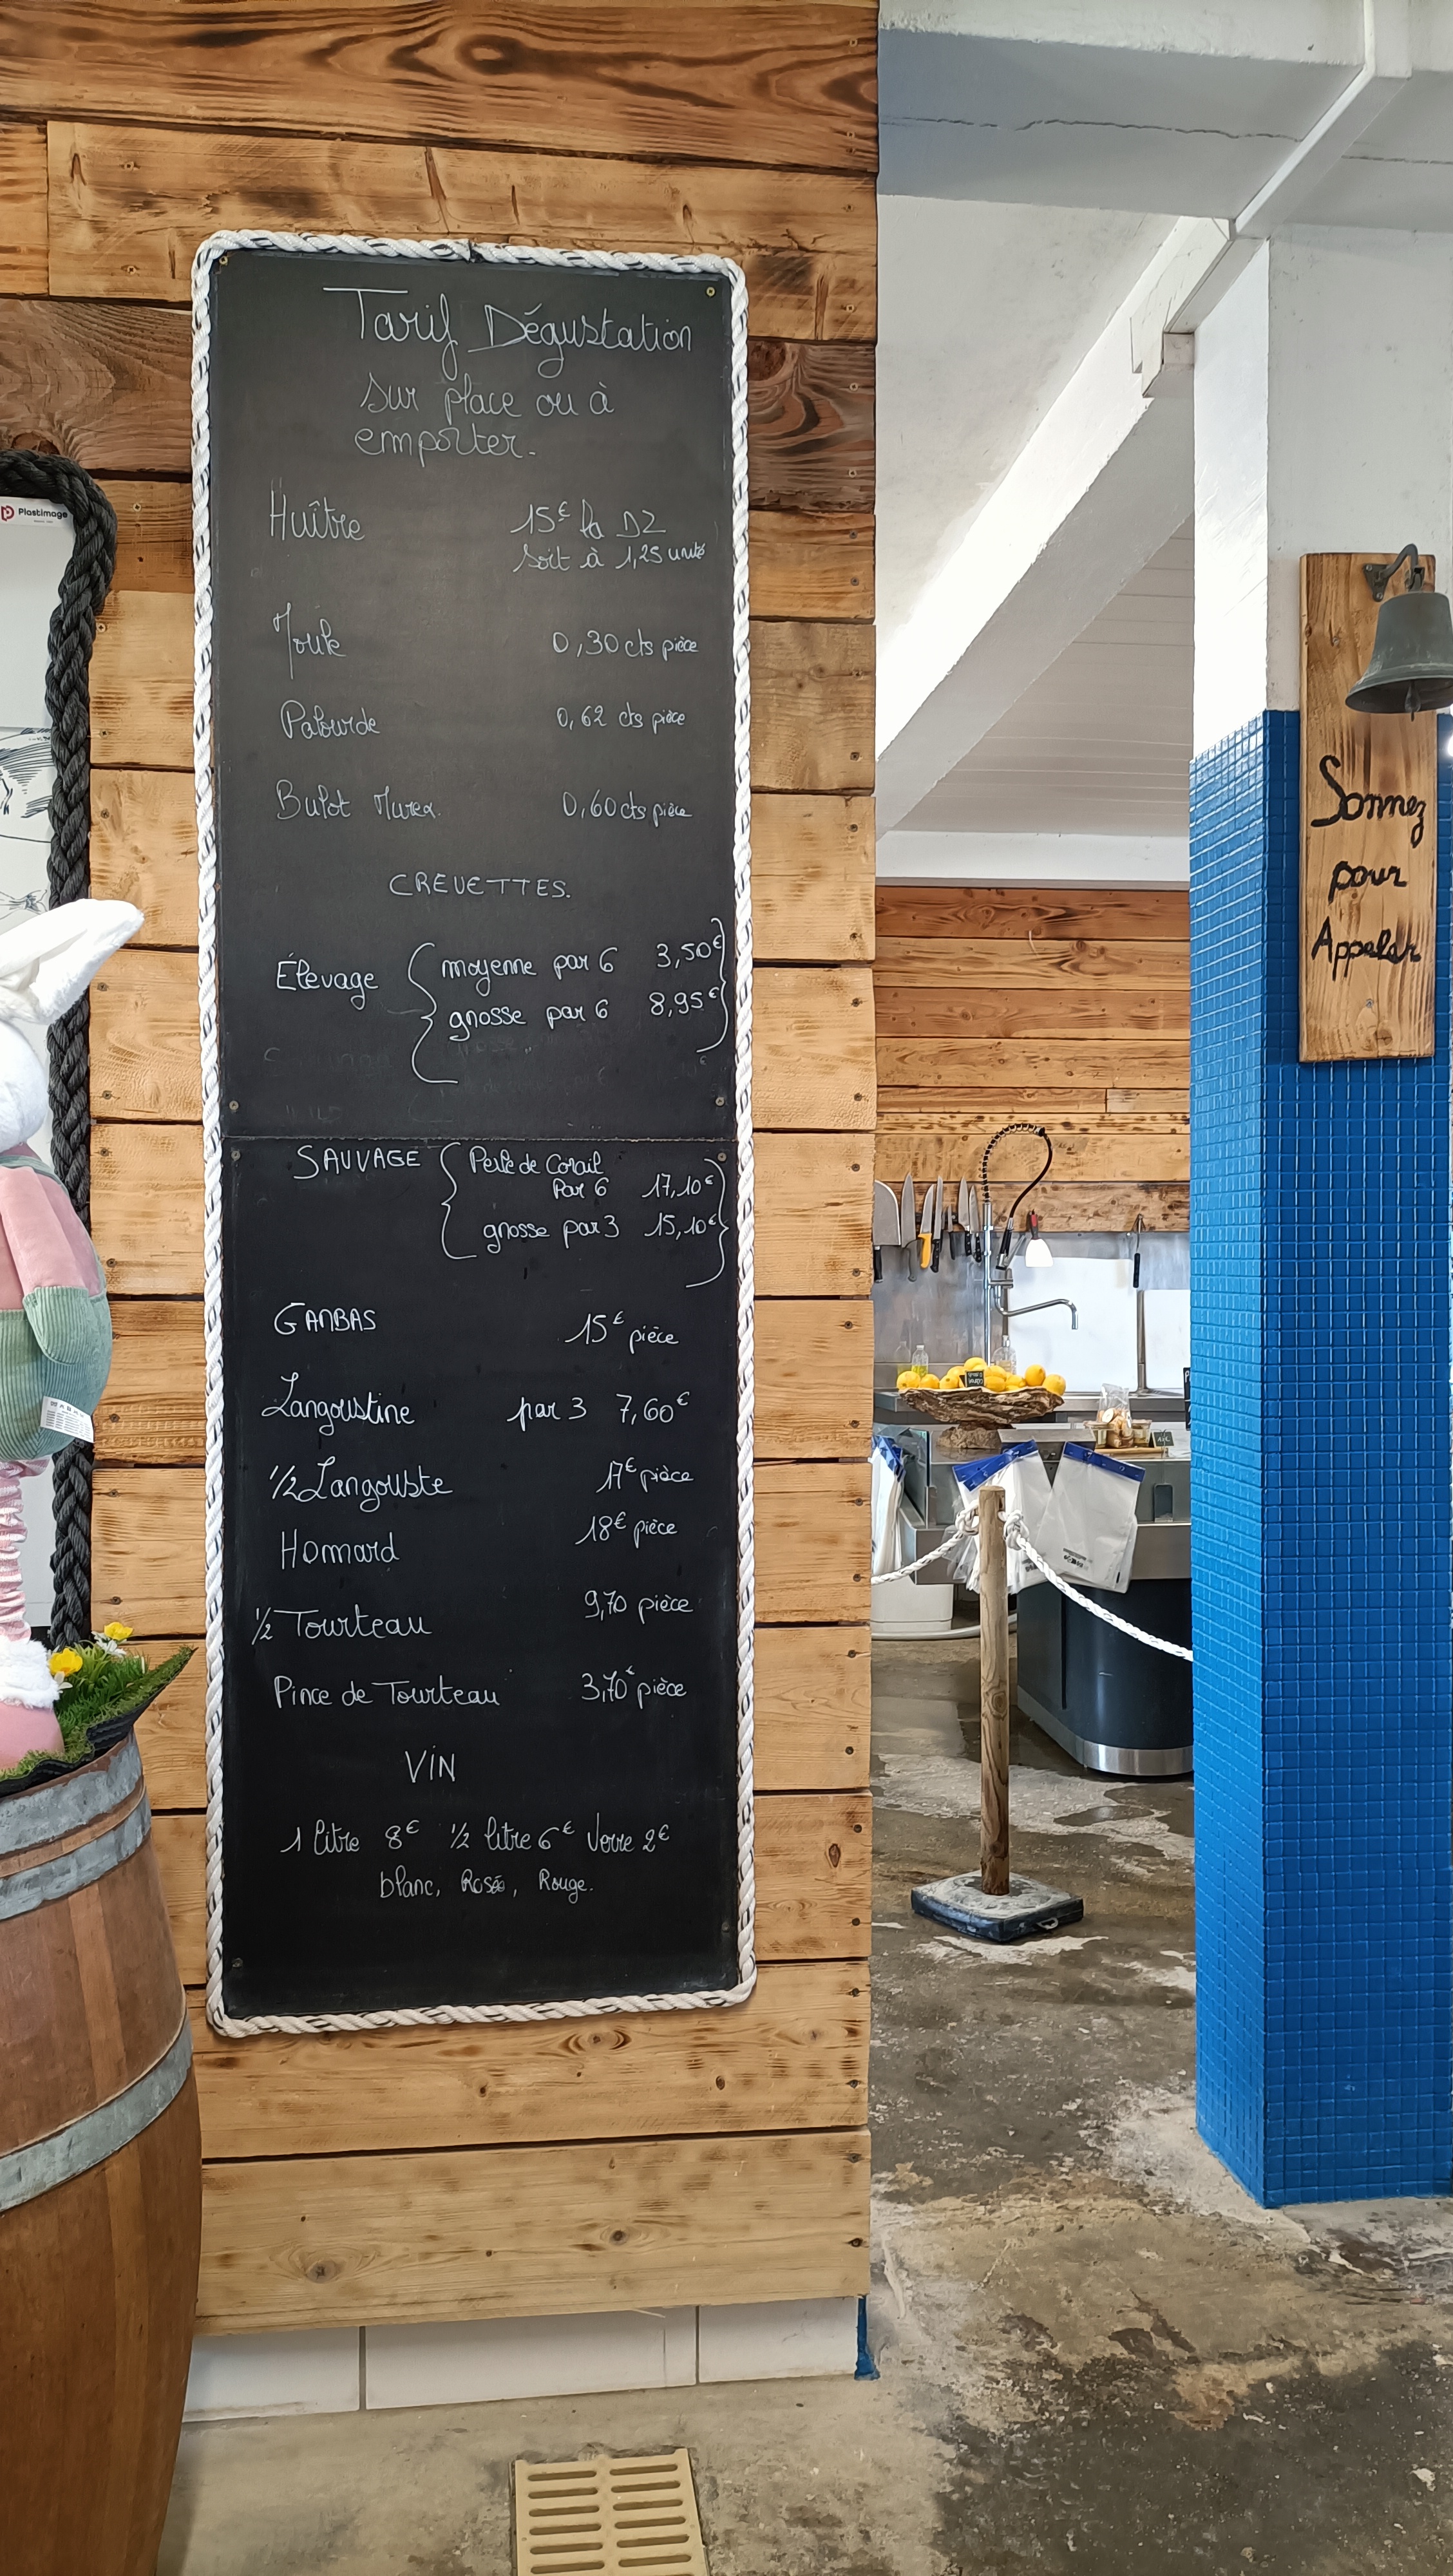 Tarif Dégustation
sur place ou à
emporter.
Huître 15€ la DZ
soit à 1,25 unité
Moule 0,30 cts pièce
Palourde 0,62 cts pièce
Bulot Murex. 0,60 cts pièce
CREVETTES.
Élevage moyenne par 6 3,50€
grosse par 6 8,95€
SAUVAGE Perle de Corail
Par 6 17,10€
grosse par 3 15,10€
GAMBAS 15€ pièce
Langoustine par 3 7,60€
1/2 Langouste 17€ pièce
Homard 18€ pièce
1/2 Tourteau 9,70 pièce
Pince de Tourteau 3,70€ pièce
VIN
1 litre 8€ 1/2 litre 6€ Verre 2€
blanc, Rosé, Rouge.
Plastimage
Sonnez
pour
Appeler